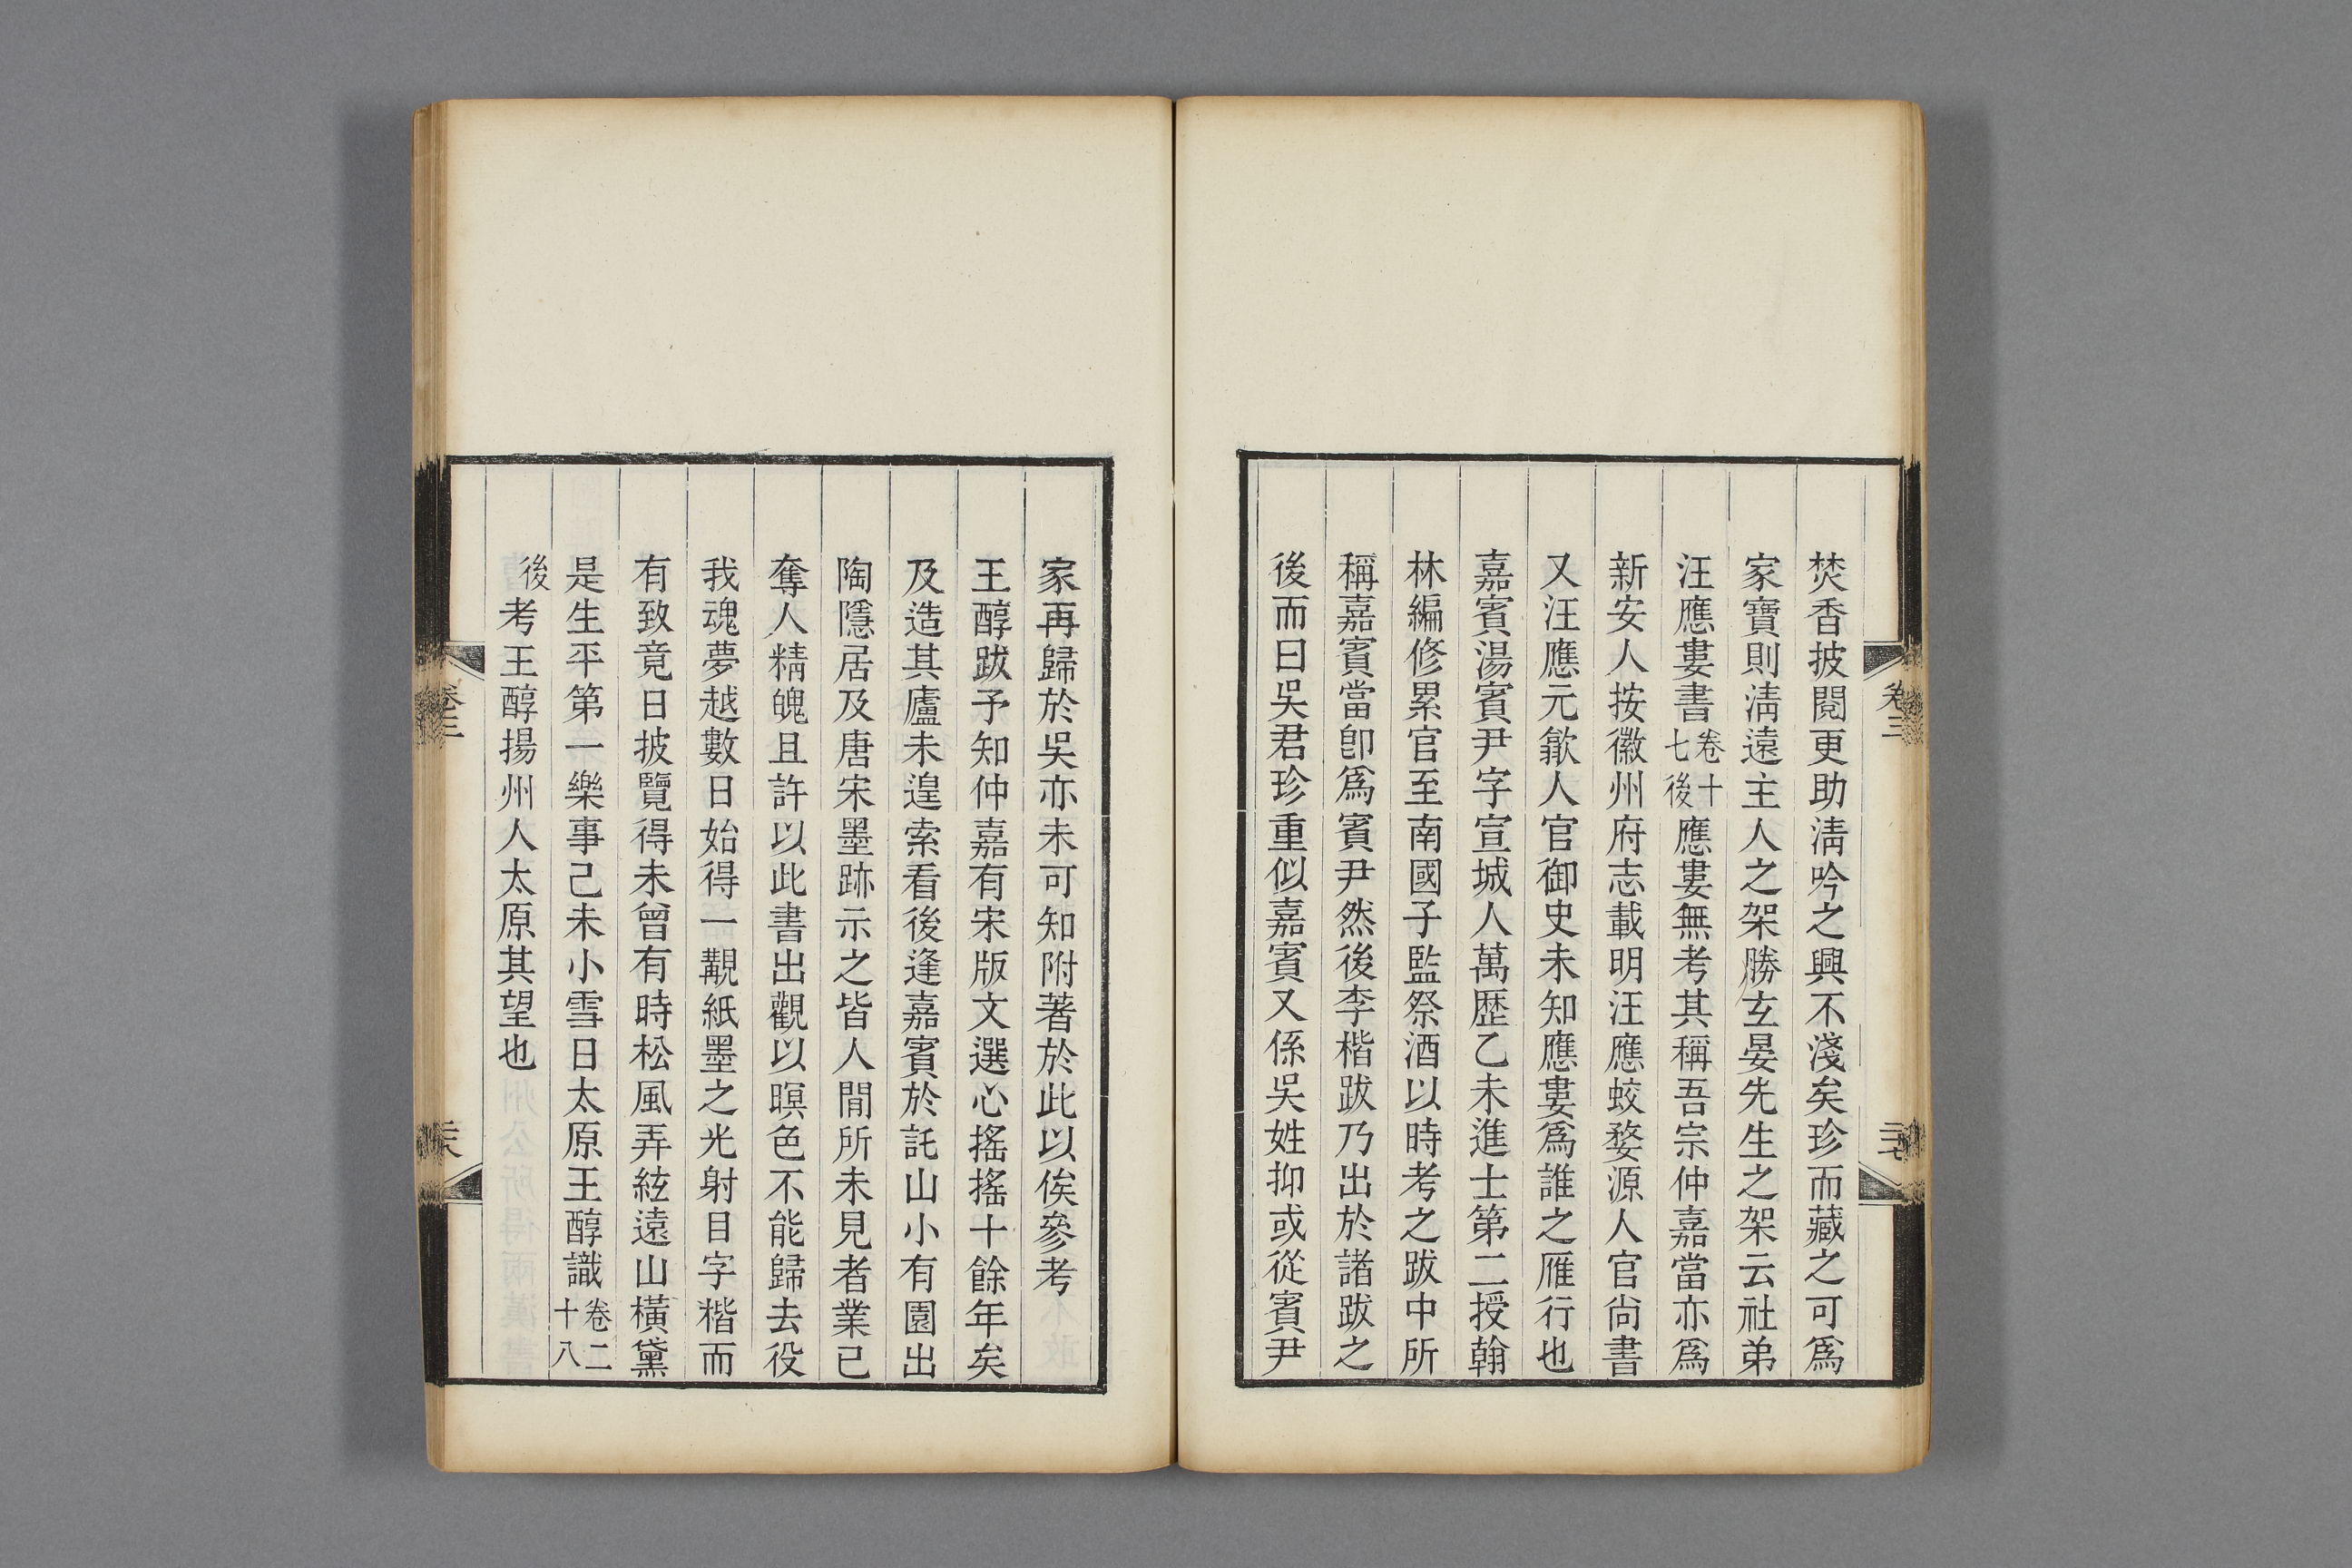 焚香披閱更助淸吟之興不淺矣珍而藏之可爲
家寶則淸遠主人之架勝玄晏先生之架云社弟
汪應婁書卷十七後應婁無考其稱吾宗仲嘉當亦爲
新安人按徽州府志載明汪應蛟婺源人官尙書
又汪應元歙人官御史未知應婁爲誰之雁行也
嘉賓湯賓尹字宣城人萬歷乙未進士第二授翰
林編修累官至南國子監祭酒以時考之跋中所
稱嘉賓當卽爲賓尹然後李楷跋乃出於諸跋之
後而曰吳君珍重似嘉賓又係吳姓抑或從賓尹
卷三
二十七
家再歸於吳亦未可知附著於此以俟參考
王醇跋予知仲嘉有宋版文選心搖搖十餘年矣
及造其廬未遑索看後逢嘉賓於託山小有園出
陶隱居及唐宋墨跡示之皆人閒所未見者業已
奪人精魄且許以此書出觀以暝色不能歸去役
我魂夢越數日始得一覯紙墨之光射目字楷而
有致竟日披覽得未曾有時松風弄絃遠山橫黛
是生平第一樂事己未小雪日太原王醇識卷二十八
後考王醇揚州人太原其望也
卷三
二十八